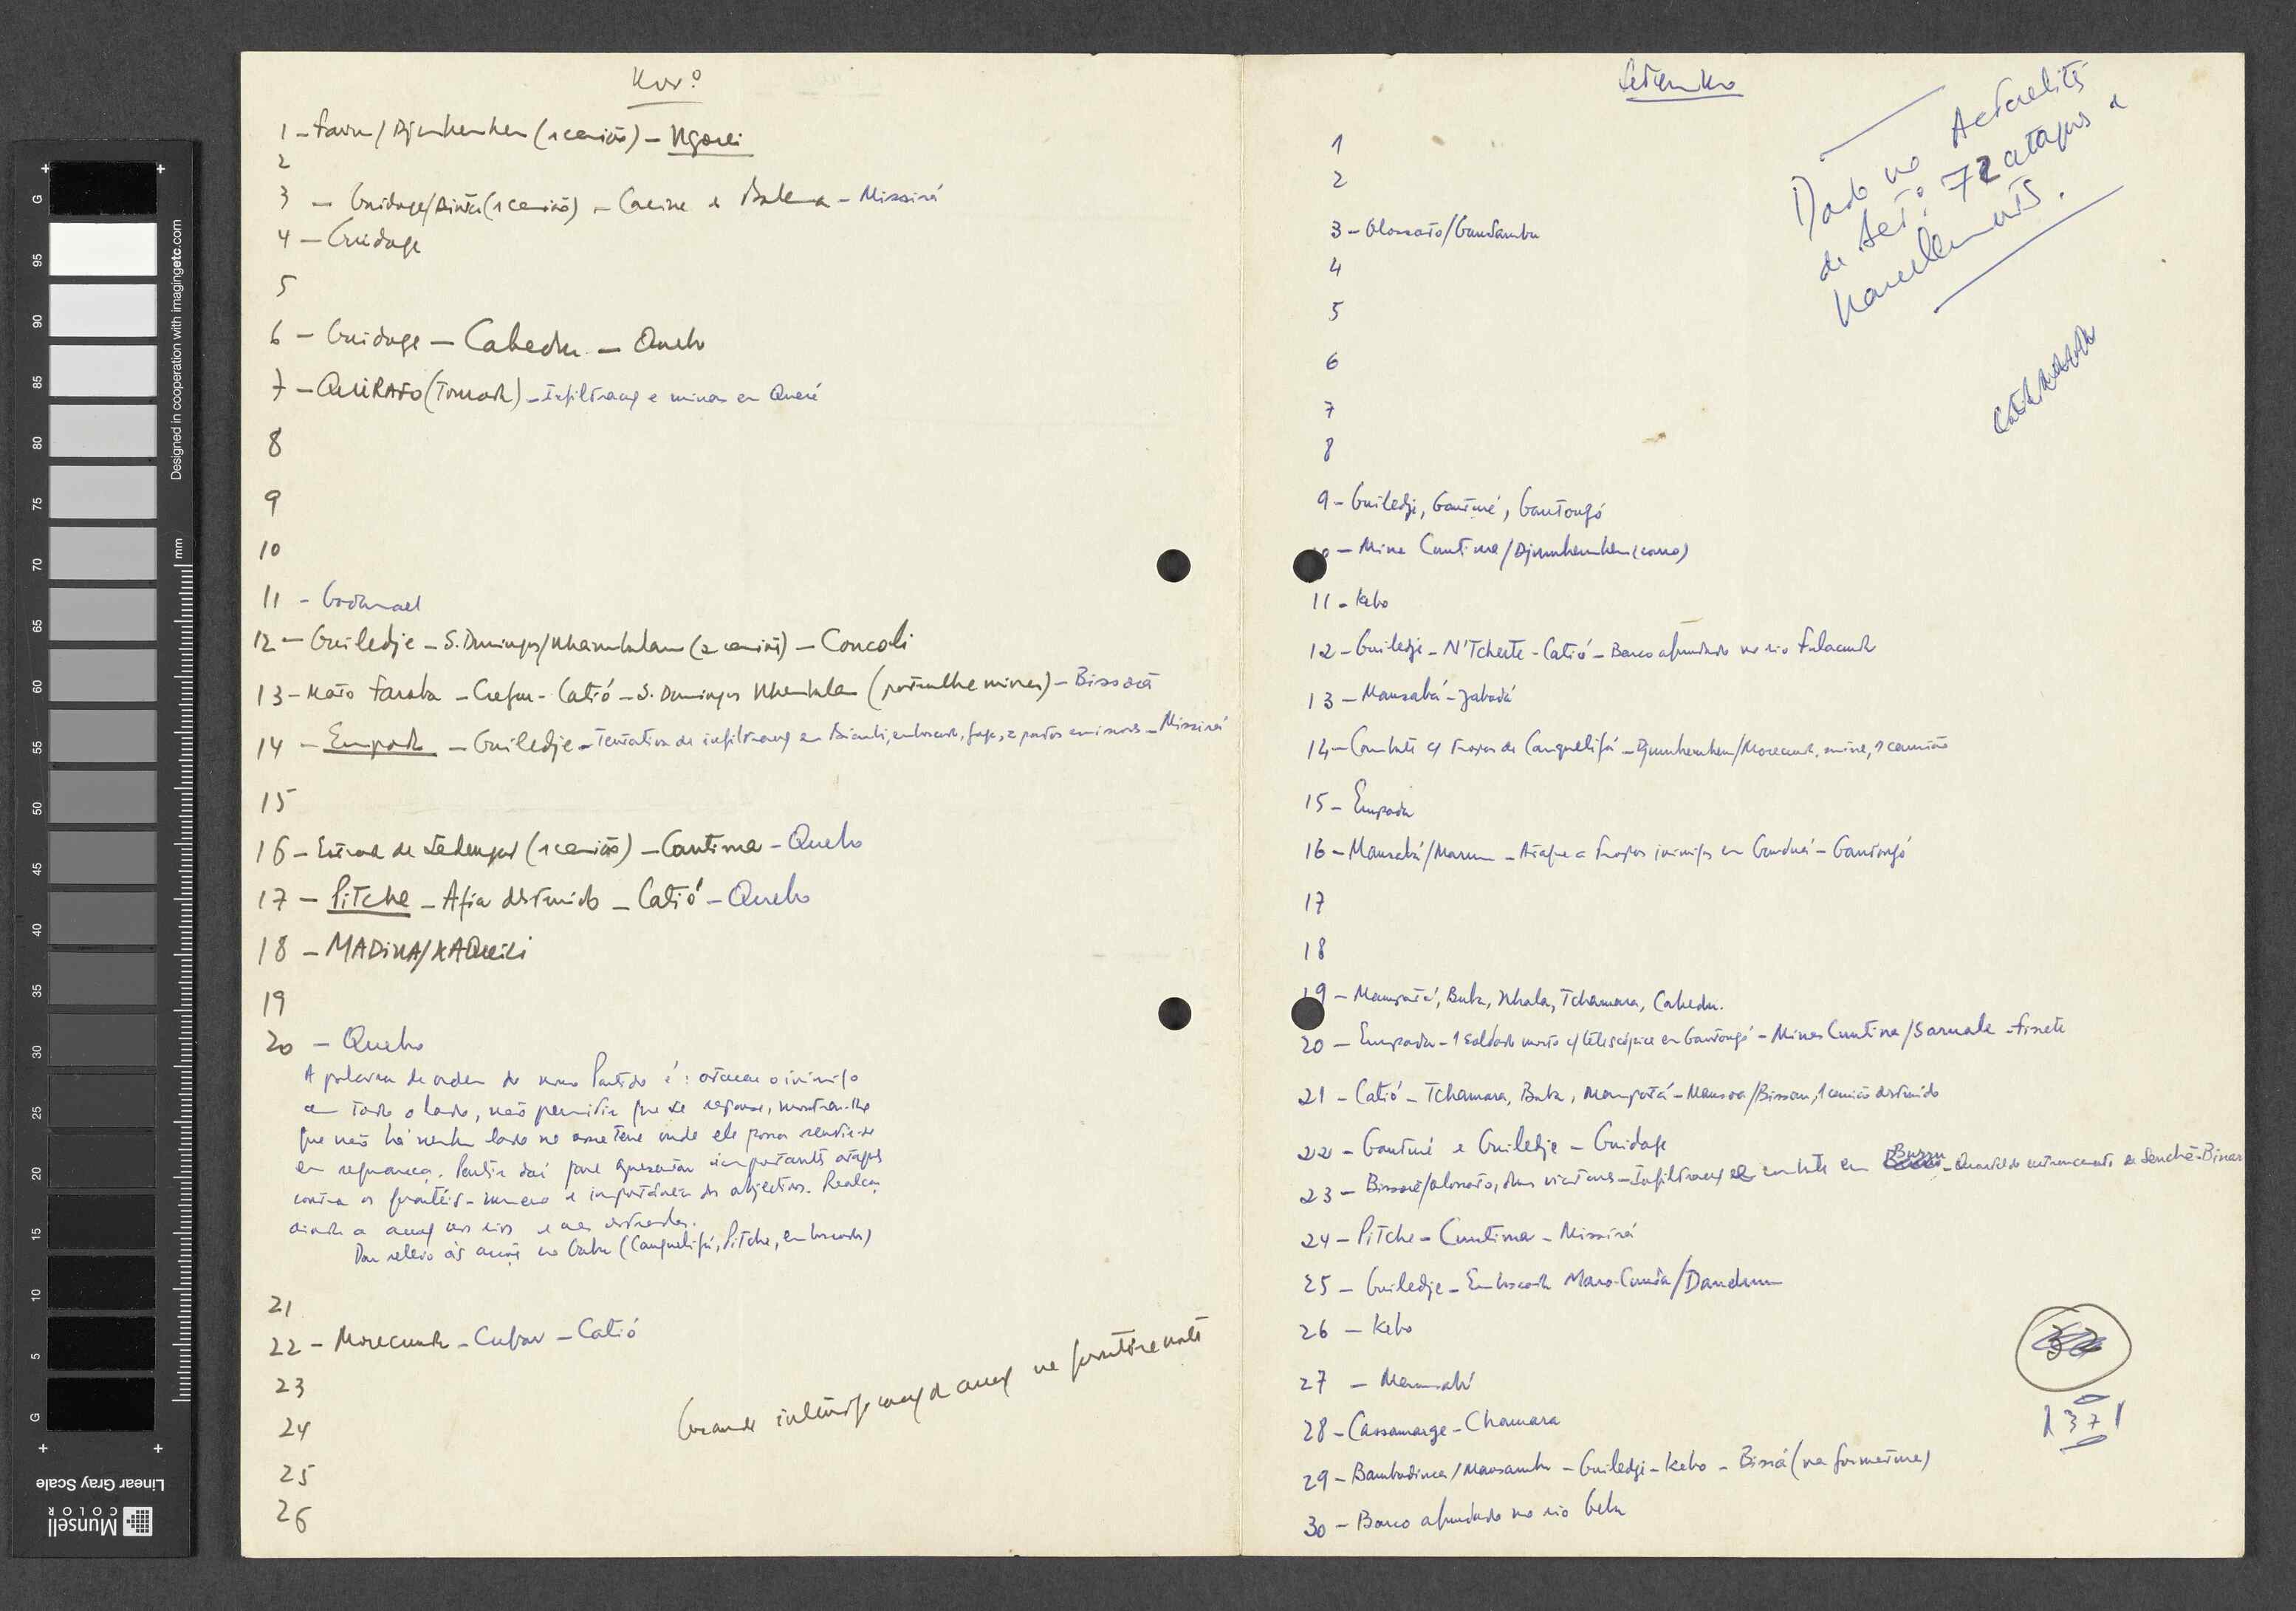 Nov.º
1 - Farim/Djumbembem (1 camião) - Ngorei
2
3 - Guidage/Binta (1 camião) - Cacine e Balana - Missirá
4 - Guidage
5
6 - Guidage - Cabedu - Quebo
7 - (Tomada) - Infiltração e minas em
8
9
10
11 - Gadamael
12 - Guiledje - S. Domingos/Nhambalam (2 camiões) - Concoli
13 - Mato Faroba - Cufar - Catió - S. Domingos Nhambalam (patrulha minas) - Bissorã
14 - Empada - Guiledje - Tentativa de infiltração em emboscada, fuga, 2 postos emissores - Missirá
15
16 - Estrada de (1 camião) - Cuntima - Quebo
17 - Pitche - Afia destruido - Catió - Quebo
18 - MADINA/
19
20 - Quebo
A palavra de ordem do nosso Partido é: atacar o inimigo
em todo o lado, não permitir que se repouse, mostrar-lhe
que não há nenhum lado na nossa terra onde ele possa sentir-se
em segurança. Partir daí para apresentar importantes ataques
contra os quartéis - número e importância dos objectivos. Realçar
ainda a acção nos rios e nas estradas.
Dar relevo às acções no Gabu (Canquelifá, Pitche, emboscadas)
21
22 - Morecunda - Cufar - Catió
23
24
25
26
Grande intensificação da acção na fronteira norte
Setembro
Dado no Actualités
de Set.º: 72 ataques e
harcèlements.
1
2
3 - Olossato/Gansambu
4
5
6
7
8
9 - Guiledje, Ganturé, Gantongó
10 - Mina Cuntima/Djumbembem (carro)
11 - Kebo
12 - Guiledje - N'Tcherte - Catió - Barco afundado no rio Fulacunda
13 - Mansabá - Jabadá
14 - Combate c/ tropas de Canquelifá - Djumbembem/Morecunda, mina, 1 camião
15 - Empada
16 - Mansabá/Mansoa - Ataque a tropas inimigas em - Gantongó
17
18
19 - Mampatá, Buba, Nhala, Tchamara, Cabedu.
20 - Empada - 1 soldado morto c/ telescópica em Gantongó - Minas Cuntima/Sarnate -
21 - Catió - Tchamara, Buba, Mampatá - Mansoa/Bissau, 1 camião destruído
22 - Ganturé e Guiledje - Guidage
23 - Bissorã/Olossato, duas viaturas - Infiltração combate em - Quartel do entroncamento de Senchã-Binar
24 - Pitche - Cuntima - Missirá
25 - Guiledje - Emboscada Maro-Cunda/Dandum
26 - Kebo
27 - Mansabá
28 - Cassamarge - Chamara
29 - Bambadinca/Mansambu - Guiledje - Kebo - Bissá
30 - Barco afundado no rio Geba
137
G
95
90
85
80
75
70
65
60
55
50
45
40
35
30
25
20
15
10
5
G
mm
Designed in cooperation with imagingetc.com
Linear Gray Scale
Munsell
COLOR